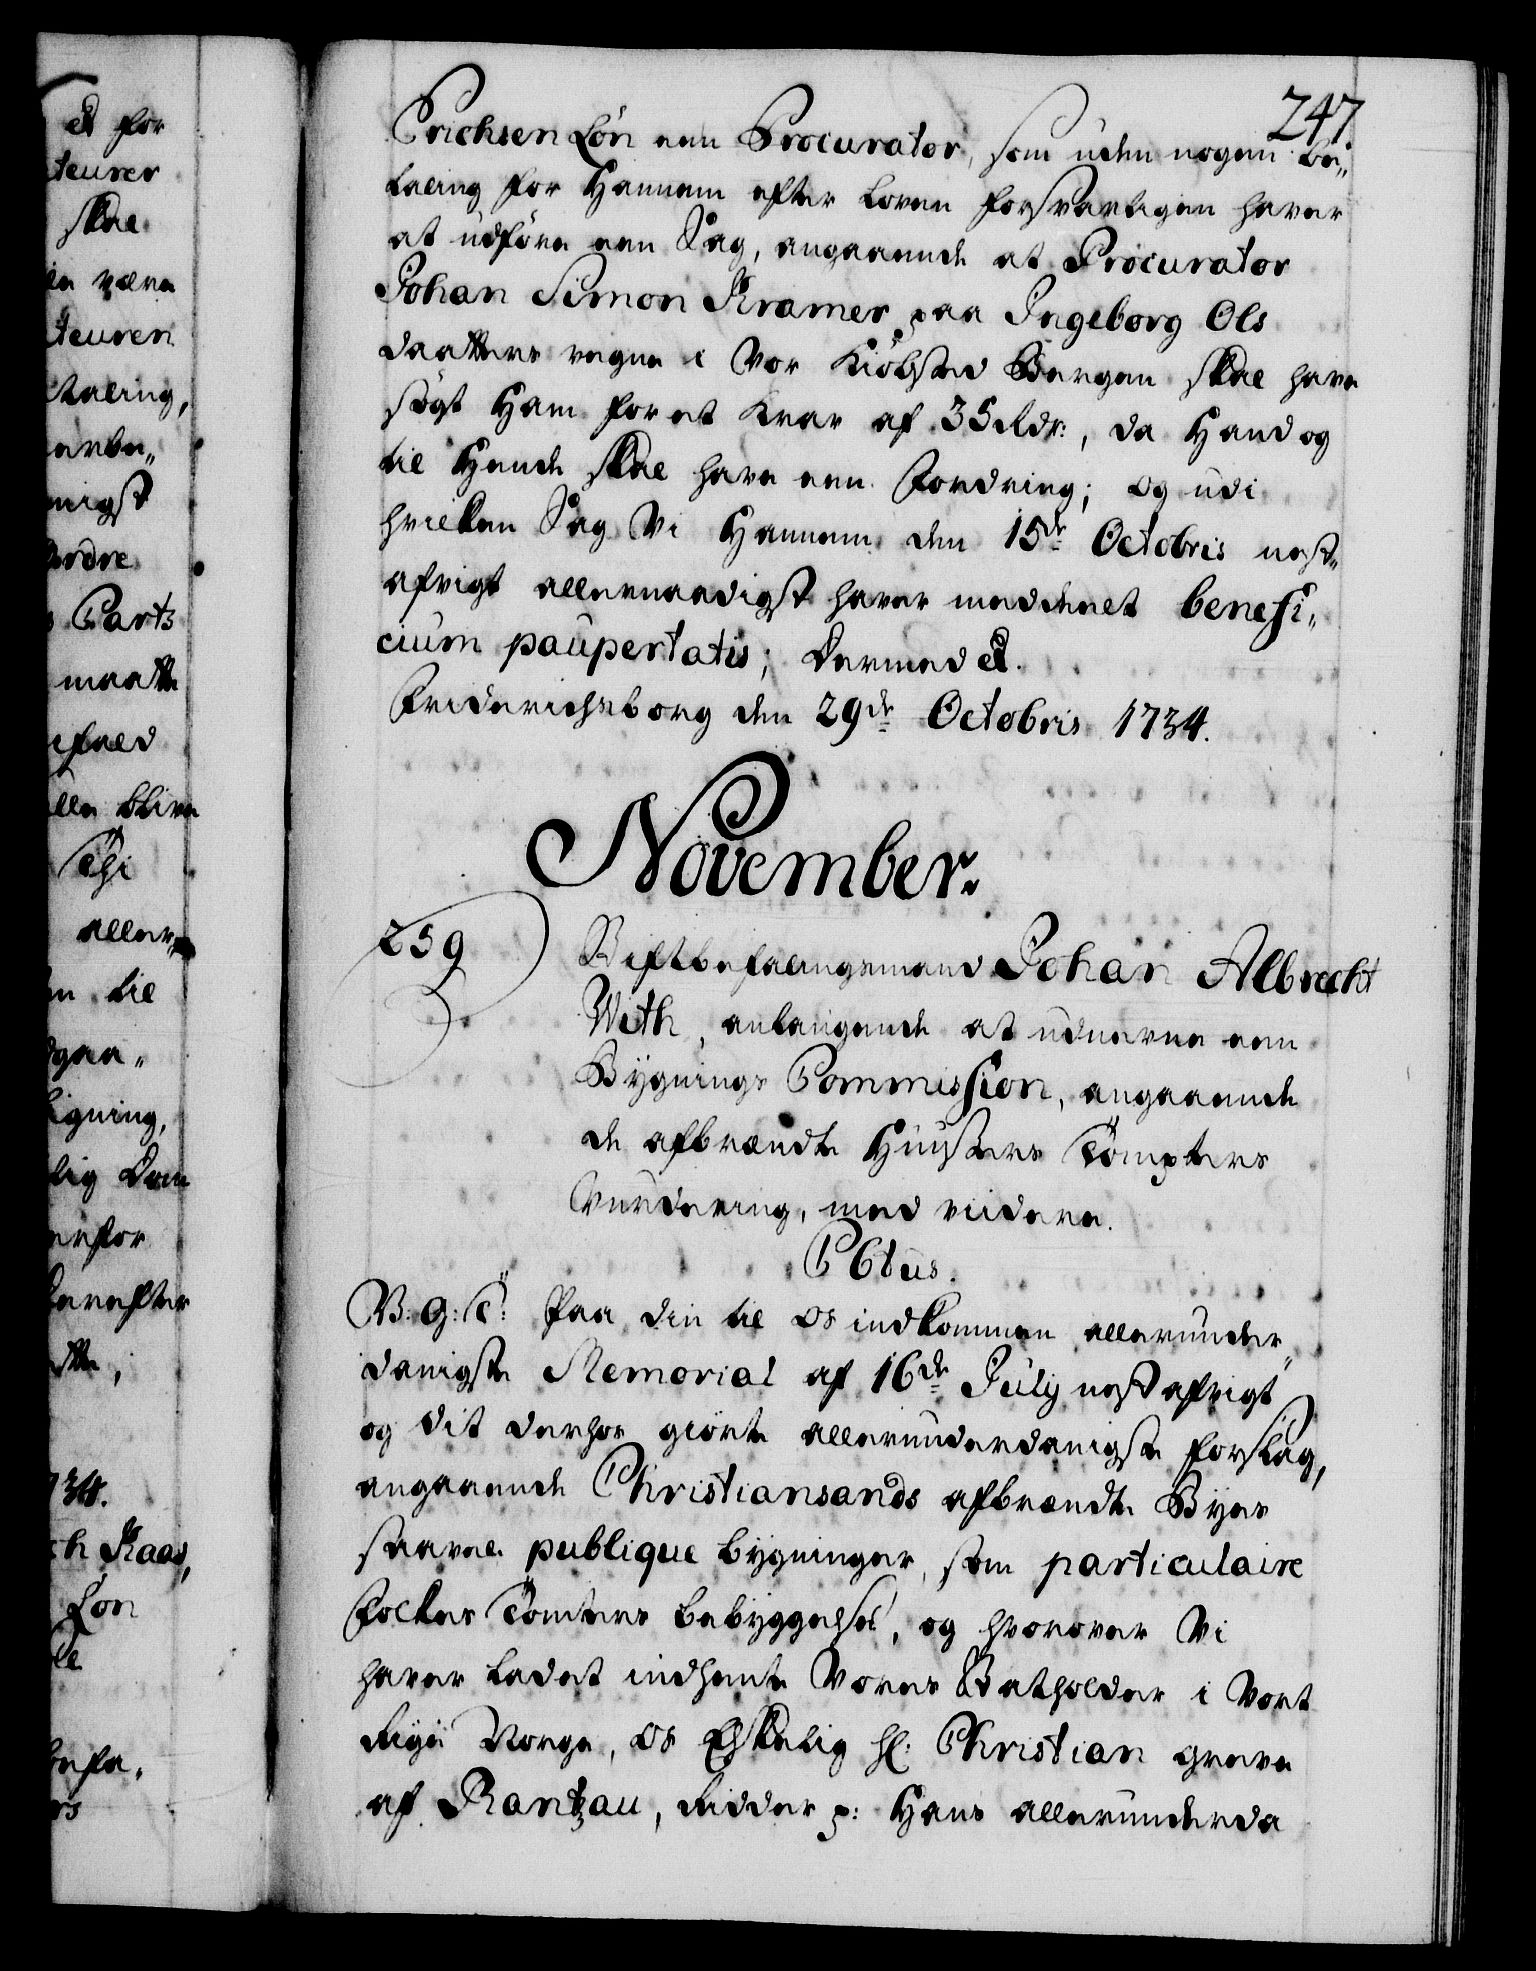 247
Erichsen Løn een Procurator, som uden nogen be„
taling for Hannem efter Loven forsvarligen haver
at udføre een Sag, angaaende at Procurator
Johan Simon Kramer paa Ingeborg Ols
daatters vegne i Vor Kiøbsted Bergen skal have
søgt Ham for et Krav af 35 Rdr:, da Hand og
til Hende skal have een Fordring; og udi
hvilken Sag Vi Hannem den 15de Octobris nest„
afvigt allernaadigst haver meddeelt benefi„
cium paupertatis; Dermed etc.
Friderichsborg den 29de Octobris 1734.
November.
259
Stiftbefalingsmand Johan Albrecht
With, anlangende at udnevne een
Bygnings Commission, angaaende
de afbrændte Huusers Tompters
Vurdering, med viidere.
C6tus.
V: G: T: Paa din til os indkommen allerunder„
danigste Memorial af 16de July nest afvigt
og dit derhos giorte allerunderdanigste forslag,
angaaende Christiansands afbrændte Byes
saavel publique bygninger, som particulaire
Folkes Tomters bebyggelse, og hvorover Vi
haver ladet indhente Vores Statholder i Vort
Rige Norge, os Elskelig Hr. Christian Greve
af Rantzau, Ridder p: Hans allerunderda